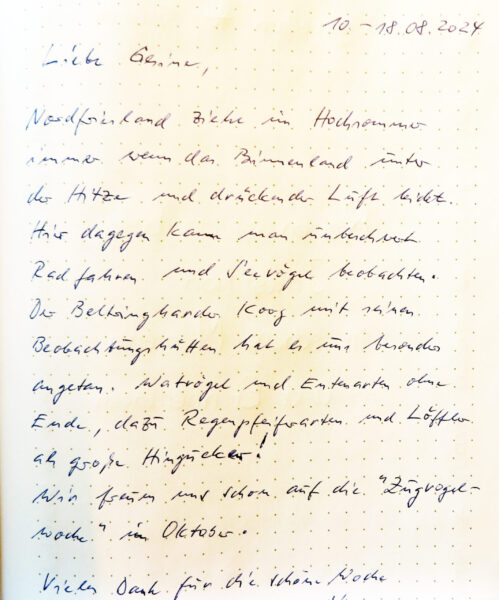 10. - 18.08.2024
Liebe Gesine,
Nordfriesland ziehe im Hochsommer
immer wenn das Binnenland unter
der Hitze und drückender Luft leidet.
Hier dagegen kann man unbeschwert
Rad fahren und Seevögel beobachten.
Der Beltringharder Koog mit seinen
Beobachtungshütten hat es uns besonders
angetan. Watvögel und Entenarten ohne
Ende, dazu Regenpfeiferarten und Löffler
als große Hingucker!
Wir freuen uns schon auf die "Zugvogel-
woche" im Oktober.
Vielen Dank für die schöne Woche